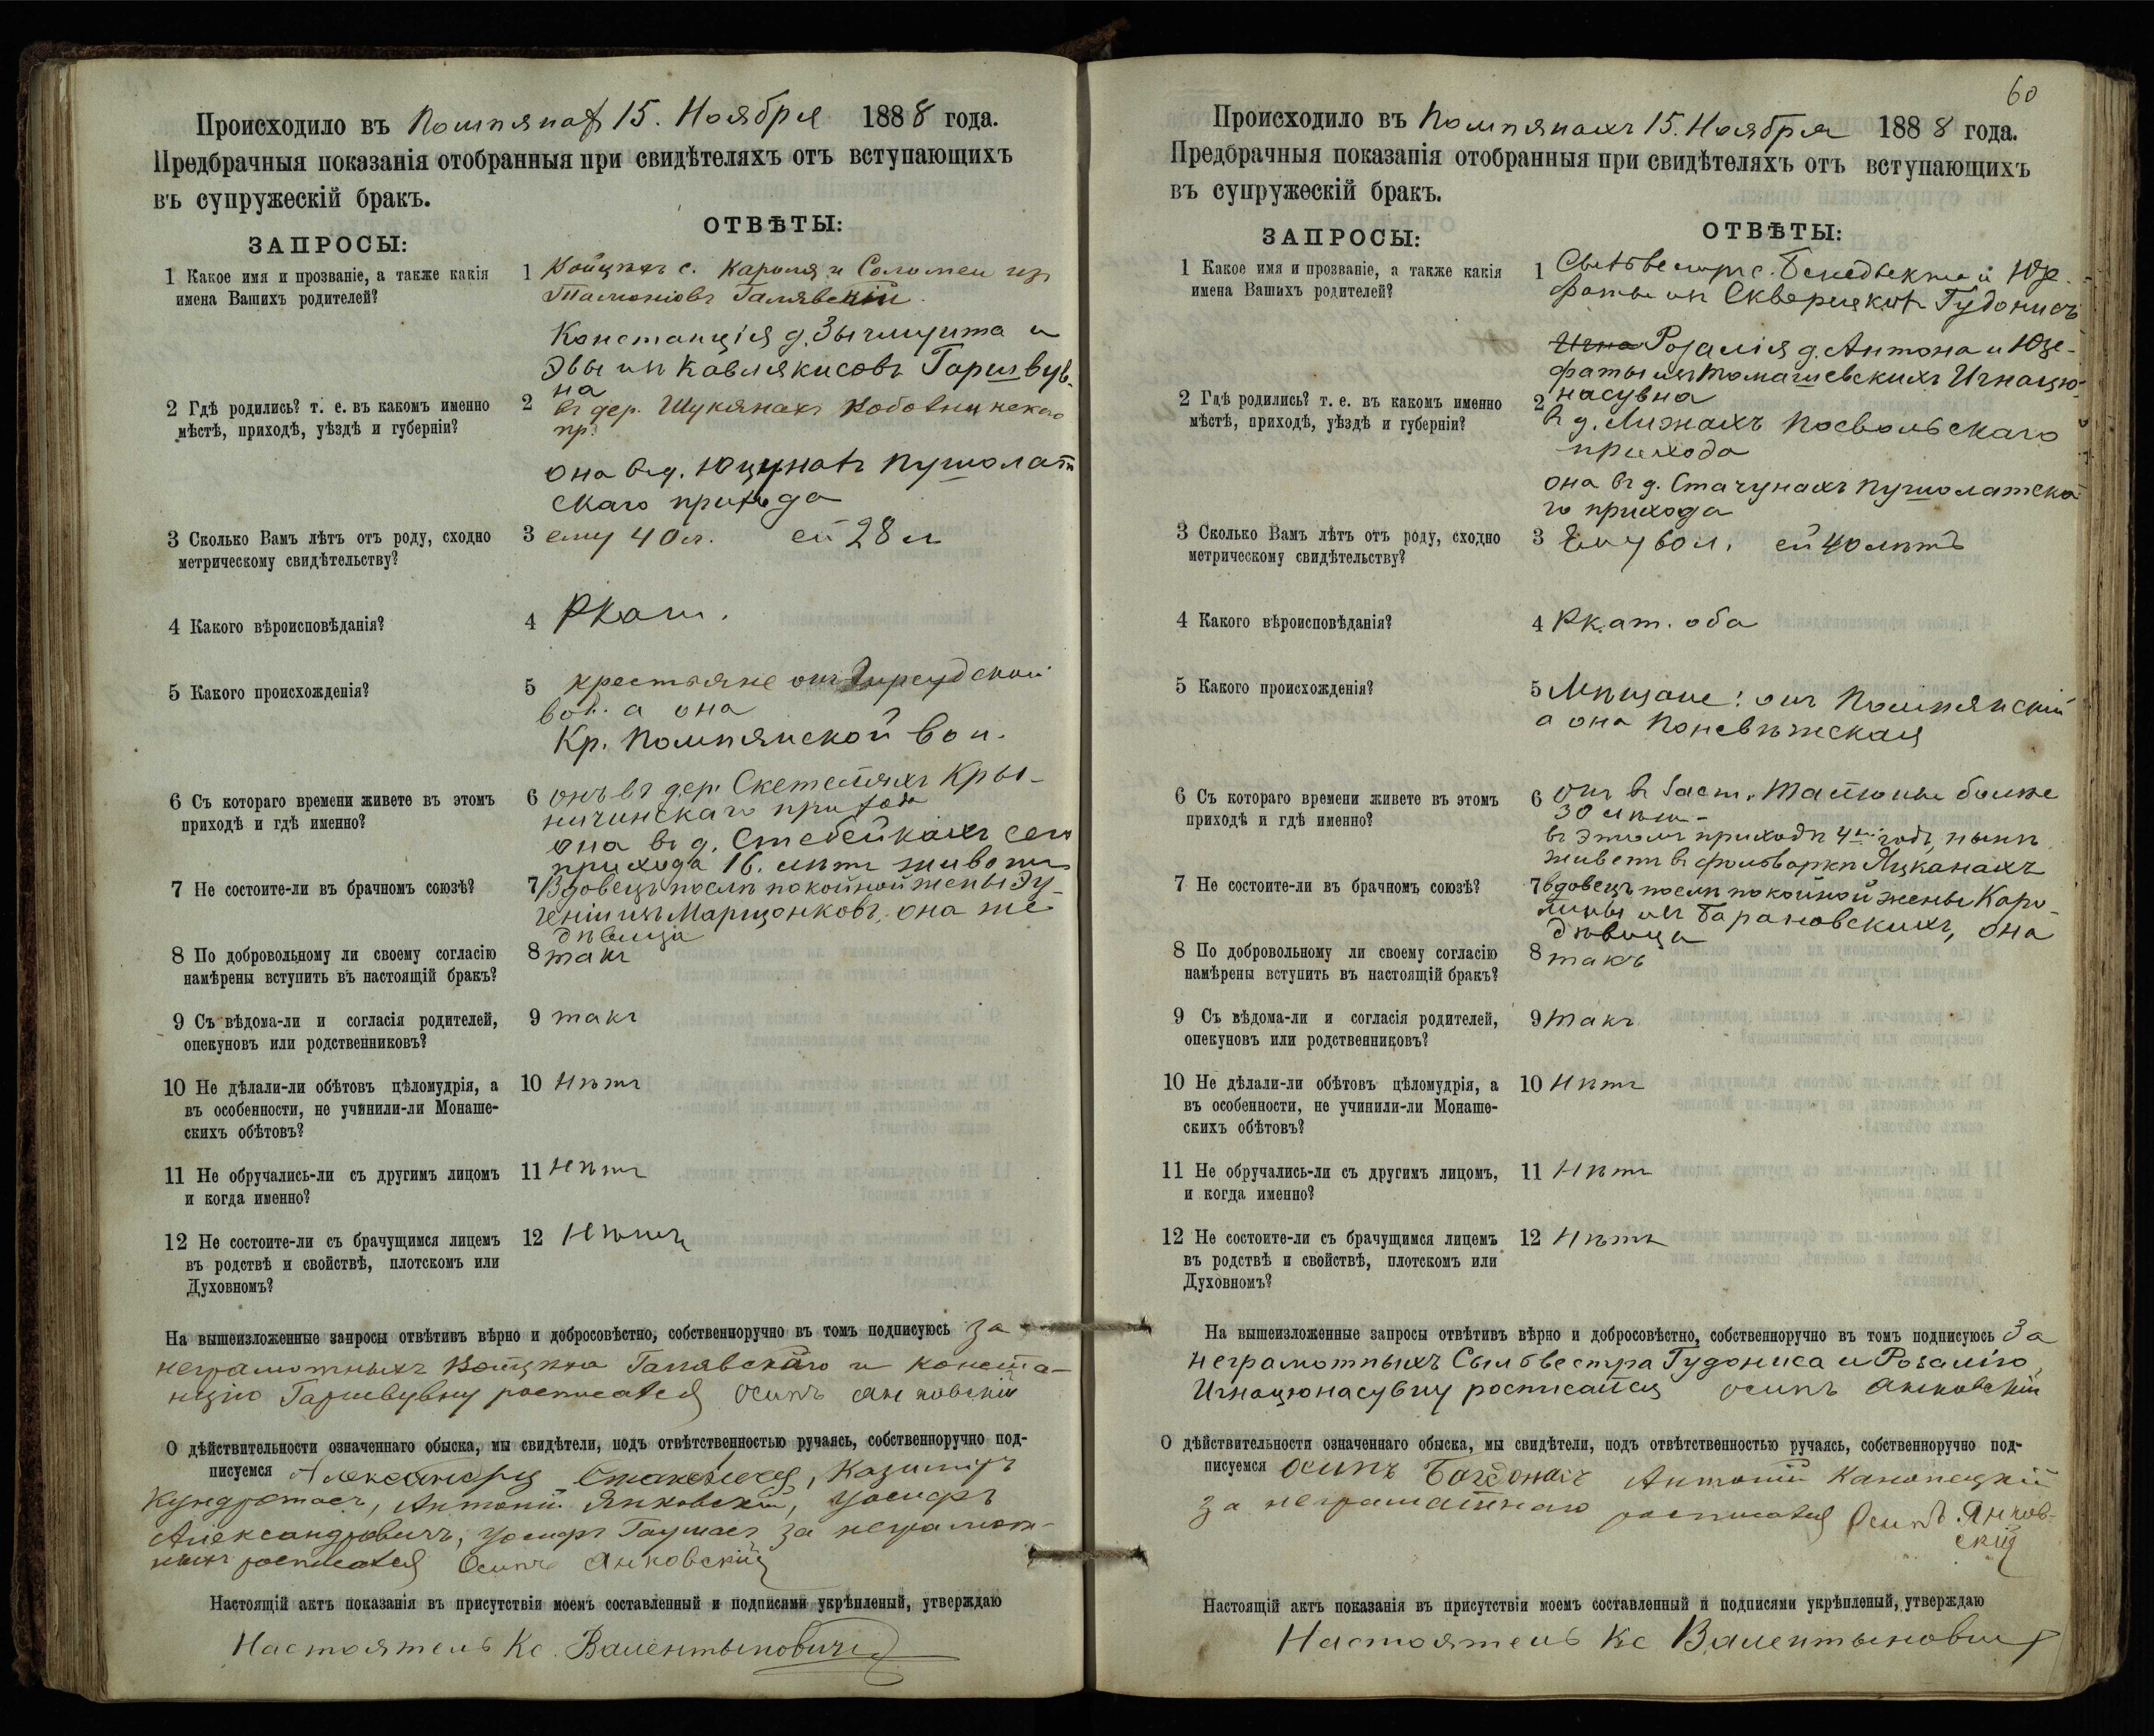 Происходило въ Помпянах 15. Ноября 1888 года.
Предбрачныя показанія отобранныя при свидѣтеляхъ отъ вступающихъ
въ супружескій бракъ.
ЗАПРОСЫ:
ОТВѢТЫ:
1 Какое имя и прозваніе, а также какія
имена Вашихъ родителей?
1 с. Кароля и Саломеи изъ
Галявскій.
Констанція д. Зыгмунта и
Эвы изъ Кавлякисовъ Гаршвув-
на
2 Гдѣ родились? т. е. въ какомъ именно
мѣстѣ, приходѣ, уѣздѣ и губерніи?
2 въ дер. Шукянахъ
пр.
она въ д. Юцунахъ Пушолат
скаго прихода
3 Сколько Вамъ лѣтъ отъ роду, сходно
метрическому свидѣтельству?
3 ему 40 л. ей 28 л
4 Какого вѣроисповѣданія?
4 Ркат.
5 Какого происхожденія?
5 крестьяне онъ
вол. а она
Кр. Помпянской вол.
6 Съ котораго времени живете въ этомъ
приходѣ и гдѣ именно?
6 онъ въ дер. Кры-
ничинскаго прихода
она въ д. Стебейкахъ сего
прихода 16. лѣтъ
7 Не состоите-ли въ брачномъ союзѣ?
7 Вдовецъ послѣ покойной жены Эу-
геніи изъ Марцонковъ, она же
дѣвица
8 По добровольному ли своему согласію
намѣрены вступить въ настоящій бракъ?
8 такъ
9 Съ вѣдома-ли и согласія родителей,
опекуновъ или родственниковъ?
9 такъ
10 Не дѣлали-ли обѣтовъ цѣломудрія, а
въ особенности, не учинили-ли Монаше-
скихъ обѣтовъ?
10 Нѣтъ
11 Не обручались-ли съ другимъ лицомъ
и когда именно?
11 Нѣтъ
12 Не состоите-ли съ брачущимся лицемъ
въ родствѣ и свойствѣ, плотскомъ или
Духовномъ?
12 Нѣтъ
На вышеизложенные запросы отвѣтивъ вѣрно и добросовѣстно, собственноручно въ томъ подписуюсь за
неграмотныхъ Галявскаго и Конста-
нцію Гаршвувну росписался Осипъ Янковскій
О дѣйствительности означеннаго обыска, мы свидѣтели, подъ отвѣтственностью ручаясь, собственноручно под-
писуемся Казимиръ
Кундротасъ, Антоній Янковскій, Уосифъ
Александровичъ, Уосифъ за неграмот-
ныхъ росписался Осипъ Янковскій
Настоящій актъ показанія въ присутствіи моемъ составленный и подписями укрѣпленый, утверждаю
Настоятель Кс. Валентыновичъ
60
Происходило въ Помпянахъ 15. Ноября 1888 года.
Предбрачныя показанія отобранныя при свидѣтеляхъ отъ вступающихъ
въ супружескій бракъ.
ЗАПРОСЫ:
ОТВѢТЫ:
1 Какое имя и прозваніе, а также какія
имена Вашихъ родителей?
1 Сыльвестръ с. Бенедыкта и Юзе-
фаты изъ Гудонисъ
Розалія д. Антона и Юзе-
фаты изъ Томашевскихъ Игнацю-
насувна
2 Гдѣ родились? т. е. въ какомъ именно
мѣстѣ, приходѣ, уѣздѣ и губерніи?
2 въ д. Лижахъ Посвольскаго
прихода
она въ д. Стачунахъ Пушолатска
го прихода
3 Сколько Вамъ лѣтъ отъ роду, сходно
метрическому свидѣтельству?
3 Ему 60 л. ей 40 лѣтъ
4 Какого вѣроисповѣданія?
4 Ркат. оба
5 Какого происхожденія?
5 Мѣщане: онъ Помпянскій
а она Поневѣжская
6 Съ котораго времени живете въ этомъ
приходѣ и гдѣ именно?
6 онъ въ заст. болѣе
30 лѣтъ -
въ этомъ приходѣ 4 годъ, нынѣ
живетъ въ фольваркѣ Яцканахъ
7 Не состоите-ли въ брачномъ союзѣ?
7 вдовецъ послѣ покойной жены Каро-
лины изъ Барановскихъ, она
дѣвица
8 По добровольному ли своему согласію
намѣрены вступить въ настоящій бракъ?
8 такъ
9 Съ вѣдома-ли и согласія родителей,
опекуновъ или родственниковъ?
9 такъ
10 Не дѣлали-ли обѣтовъ цѣломудрія, а
въ особенности, не учинили-ли Монаше-
скихъ обѣтовъ?
10 Нѣтъ
11 Не обручались-ли съ другимъ лицомъ,
и когда именно?
11 Нѣтъ
12 Не состоите-ли съ брачущимся лицемъ
въ родствѣ и свойствѣ, плотскомъ или
Духовномъ?
12 Нѣтъ
На вышеизложенные запросы отвѣтивъ вѣрно и добросовѣстно, собственноручно въ томъ подписуюсь За
неграмотныхъ Сыльвестра Гудониса и Розалію
Игнацюнасувну росписался осипъ Янковскій
О дѣйствительности означеннаго обыска, мы свидѣтели, подъ отвѣтственностью ручаясь, собственноручно под-
писуемся Осипъ Богдонасъ Антоній Канопацкій
за неграматнаго росписался Осипъ Янков-
скій
Настоящій актъ показанія въ присутствіи моемъ составленный и подписями укрѣпленый, утверждаю
Настоятель Кс Валентыновичъ